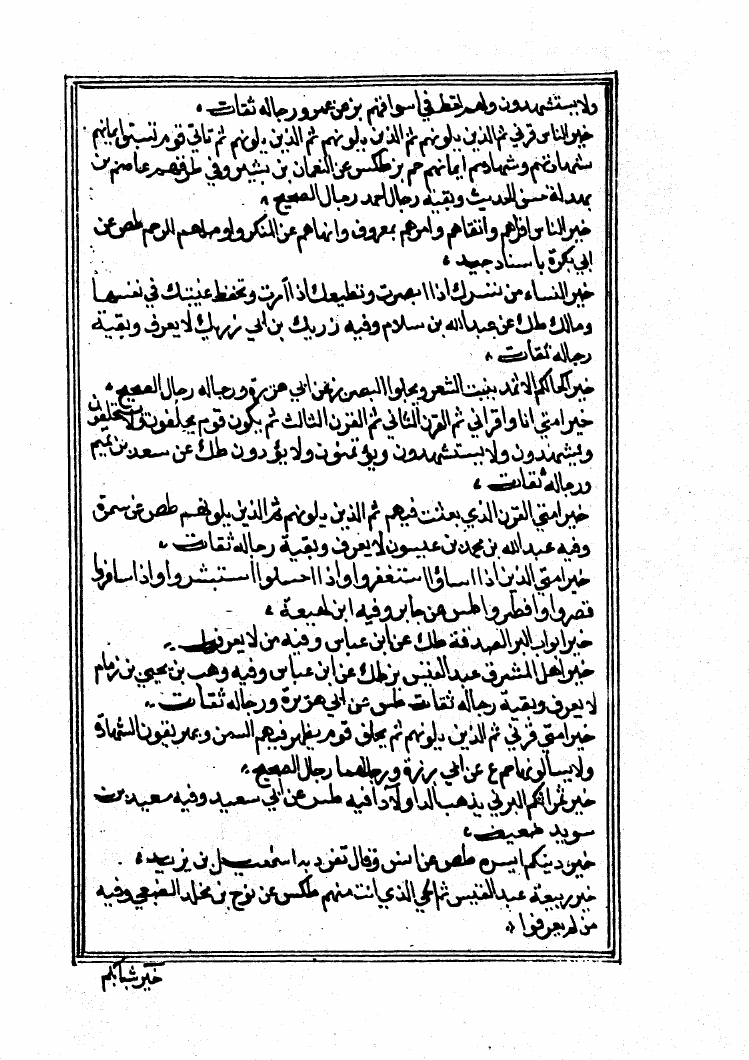 ولا يستشهدون ولهم لغط في اسواقهم بز عن عمر ورجاله ثقات ،
خير الناس قرني ثم الذين يلونهم ثم الذين يلونهم ثم الذين يلونهم ثم تاتي قوم تسبق ايمانهم
شهادتهم وشهادتهم ايمانهم حم بز طكس عن النعمان بن بشير وفي طرقهم عاصم بن
بهدلة حسن الحديث وبقية رجال احمد رجال الصحيح ،
خير الناس اقراهم واتقاهم وامرهم بمعروف وانهاهم عن المنكر واوصلهم للرحم طص عن
ابي بكرة باسناد جيد ،
خير النساء من تسرك اذا ابصرت وتطيعك اذا امرت وتحفظ غيبتك في نفسها
ومالك طك عن عبد الله بن سلام وفيه زريك بن ابي زريك لا يعرف وبقية
رجاله ثقات ،
خير اكحالكم الاثمد ينبت الشعر ويجلوا البصر بز عن ابي هريرة ورجاله رجال الصحيح ،
خير امتي انا واقراني ثم القرن الثاني ثم القرن الثالث ثم يكون قوم يحلفون ولا يستحلفون
ويشهدون ولا يستشهدون ويؤتمنون ولا يؤدون طك عن سعد بن تميم
ورجاله ثقات ،
خير امتي القرن الذي بعثت فيهم ثم الذين يلونهم ثم الذين يلونهم طص عن سمرة
وفيه عبد الله بن محمد بن عيسون لا يعرف وبقية رجاله ثقات
خير امتي الذين اذا اساؤا استغفروا واذا احسنوا استبشروا واذا سافروا
قصروا وافطروا طس عن جابر وفيه ابن لهيعة ،
خير ابواب البر الصدقة طك عن ابن عباس وفيه من لا يعرف
خير اهل المشرق عبد القيس بز طك عن ابن عباس وفيه وهب بن يحيى بن زمام
لا يعرف وبقية رجاله ثقات طس عن ابي هريرة ورجاله ثقات
خير امتي قرني ثم الذين يلونهم ثم يخلق قوم يظهر فيهم السمن ويهريقون الشهادة
ولا يسالونها حم ع عن ابي برزة ورجالهما رجال الصحيح
خير تمراتكم البرني يذهب الداء ولا داء فيه طس عن ابي سعيد وفيه سعيد بن
سويد ضعيف ،
خير دينكم ايسره طص عن انس وقال تفرد به اسمعيل بن يزيد ،
خير ربيعة عبد القيس ثم الحي الذي انت منهم طكس عن نوح بن مخلد الضبعي وفيه
من لم يعرفوا ،
خير شبابكم